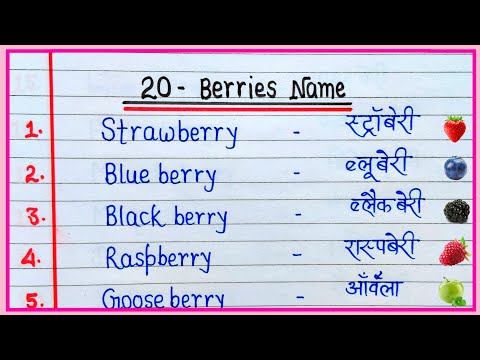 20- Berries Name
1. Strawberry - स्ट्रॉबेरी
2. Blue berry - ब्लूबेरी
3. Black berry - ब्लैकबेरी
4. Raspberry - रास्पबेरी
5. Goose berry - आँवला